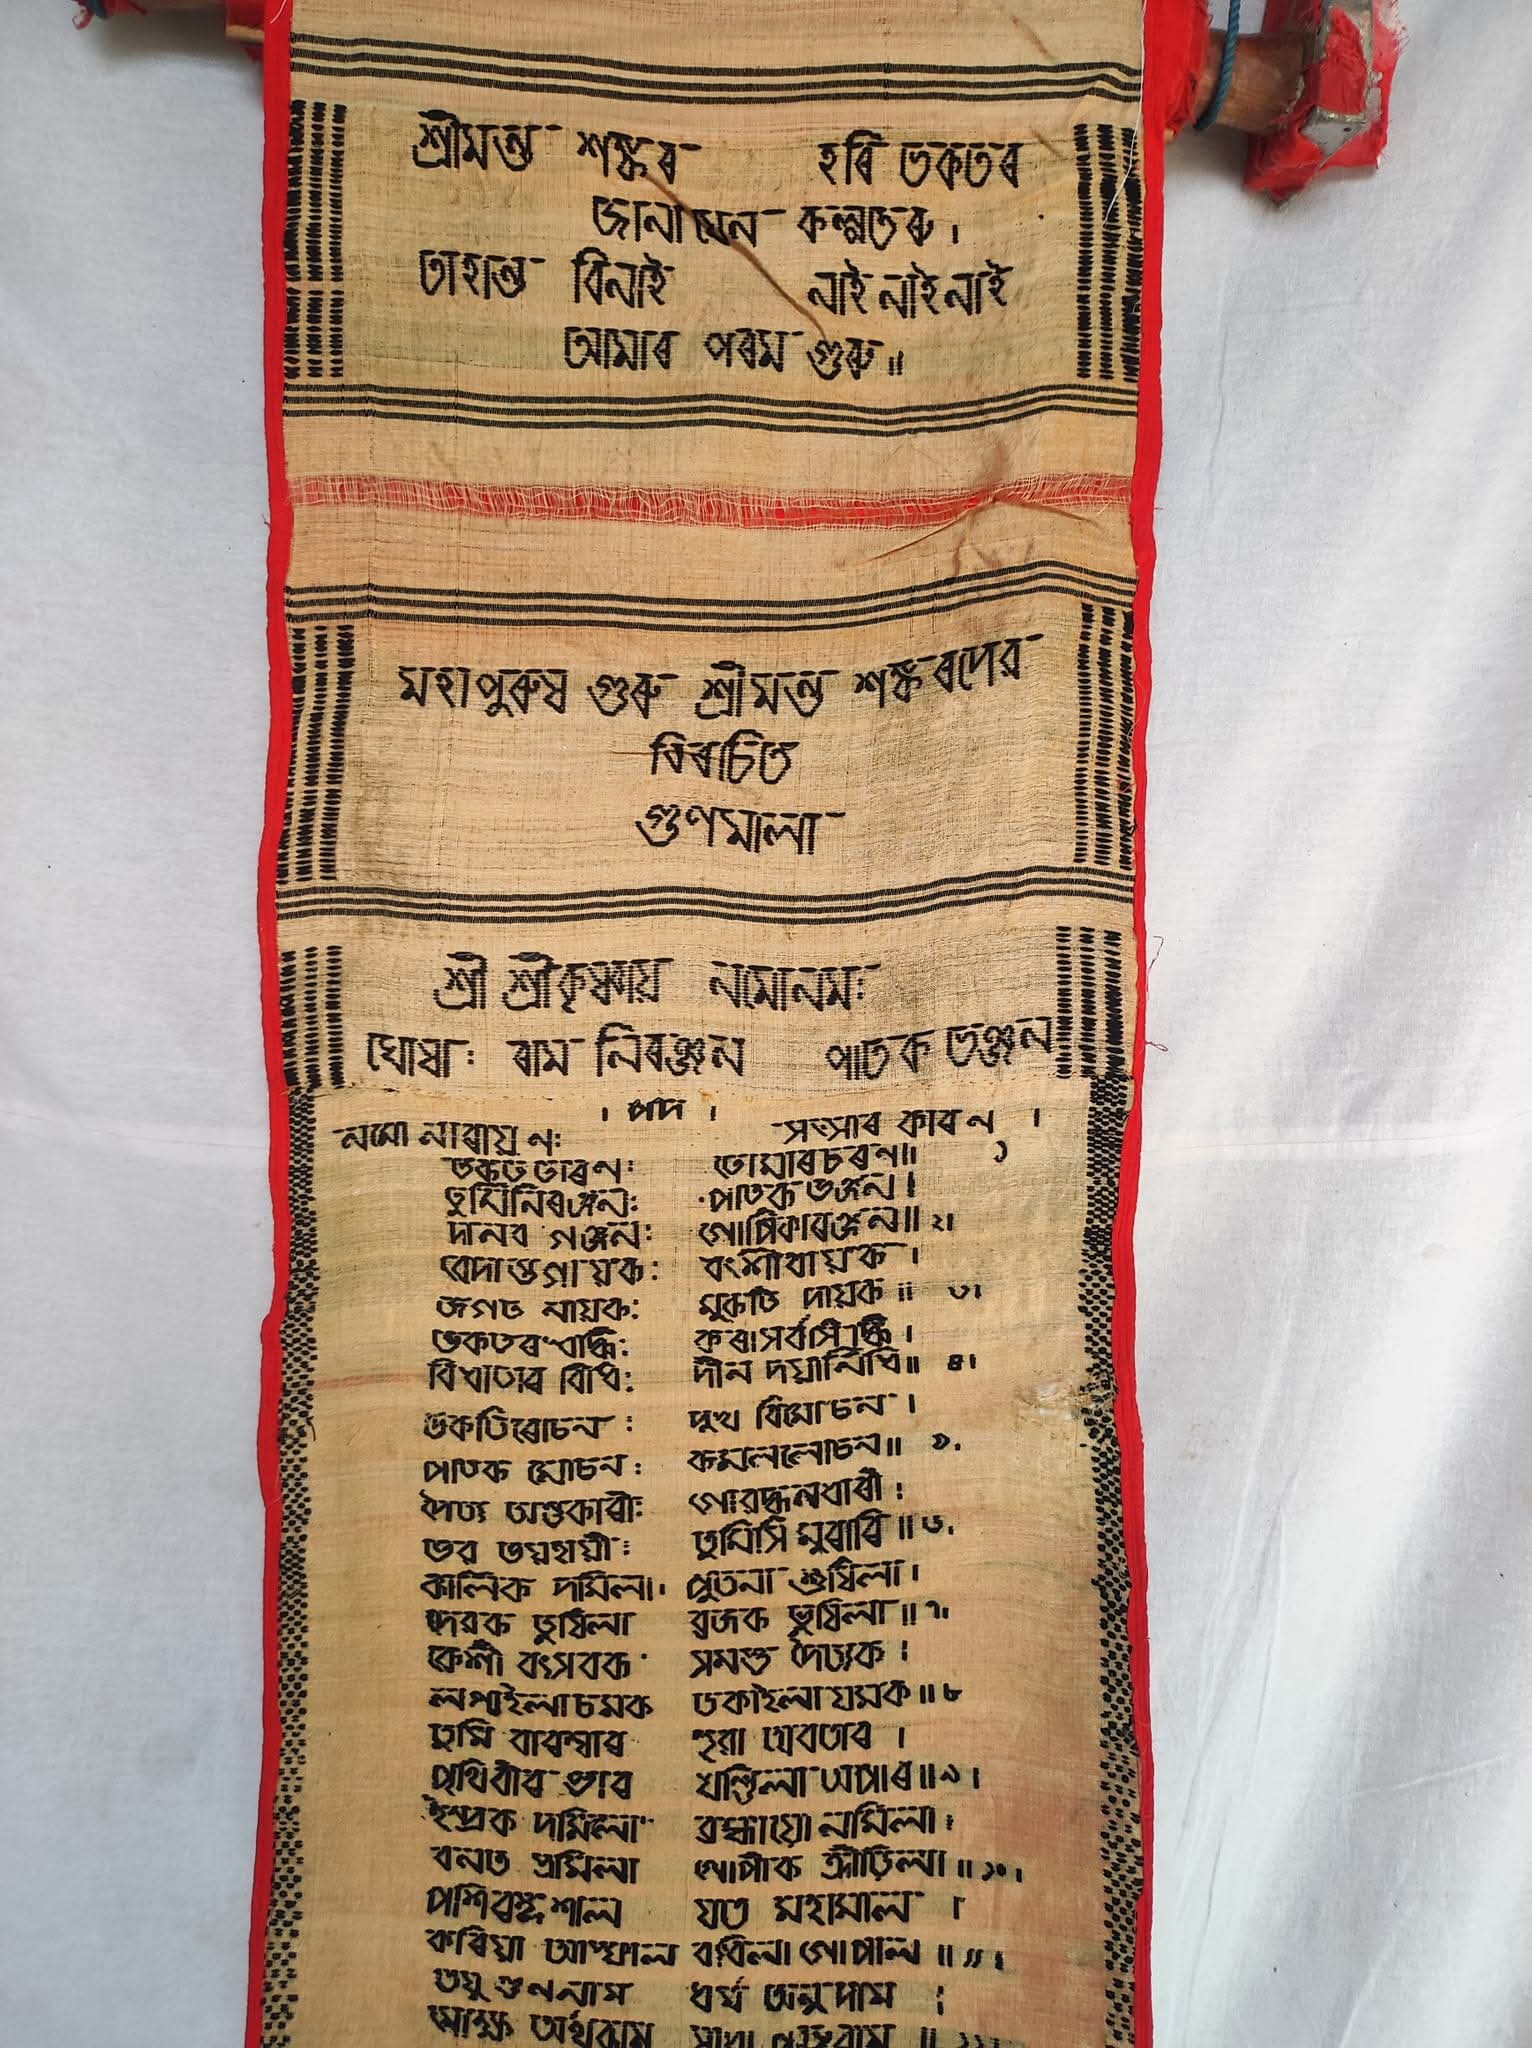 শ্ৰীমন্ত শঙ্কৰ হৰি ভকতৰ
জানা যেন কল্পতৰু।
তাহান্ত বিনাই নাই নাই নাই
আমাৰ পৰম গুৰু॥
মহাপুৰুষ গুৰু শ্ৰীমন্ত শঙ্কৰদেৱ
বিৰচিত
গুণমালা
শ্ৰী শ্ৰীকৃষ্ণায় নমোনমঃ
ঘোষাঃ ৰাম নিৰঞ্জন পাতক ভঞ্জন
। পদ ।
নমো নাৰায়ণঃ সংসাৰ কাৰন ।
ভকত তাৰণঃ তোমাৰ চৰণ॥ ১
তুমি নিৰঞ্জনঃ পাতক ভঞ্জন।
দানৱ গঞ্জনঃ গোপিকা ৰঞ্জন॥ ২।
বেদান্ত গায়কঃ বংশী বায়ক ।
জগত নায়কঃ মুকতি দায়ক॥ ৩।
ভকতৰ ঋদ্ধিঃ কৰা সৰ্বসিদ্ধি।
বিধাতাৰ বিধিঃ দীন দয়ানিধি॥ ৪।
ভকতি ৰোচনঃ দুখ বিমোচন ।
পাতক মোচনঃ কমললোচন॥ ৫.
দৈত্য অন্তকাৰীঃ গোৱৰ্দ্ধনধাৰী।
ভৱ ভয়হাৰীঃ তুমিসি মুৰাৰি॥ ৬.
কালিক দমিলা। পুতনা শুষিলা।
দেৱক তুষিলা ব্ৰজক ভুষিলা॥ ৭।
কেশী বৎস বক সমস্ত দৈত্যক।
লগাইলা চমক ডকাইলা যমক॥ ৮
তুমি বাৰম্বাৰ হুয়া অৱতাৰ ।
পৃথিবীৰ ভাৰ খণ্ডিলা অপাৰ॥ ৯।
ইন্দ্ৰক দমিলা ব্ৰহ্মায়ো নমিলা।
বনত ভ্ৰমিলা গোপীক ক্ৰীড়িলা॥ ১০।
পশি ৰঙ্গশাল যত মহামাল ।
কৰিয়া আস্ফাল বধিলা গোপাল॥ ১১।
তযু গুণ নাম ধৰ্ম অনুপাম ;
মোক্ষ অৰ্থ কাম